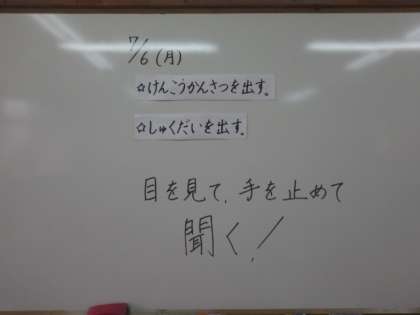 7/6(月)
☆けんこうかんさつを出す。
☆しゅくだいを出す。
目を見て、手を止めて
聞く!